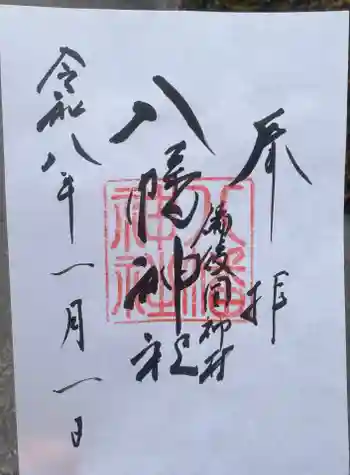 奉拝
備後國神村
八幡神社
八幡神社
令和八年一月一日